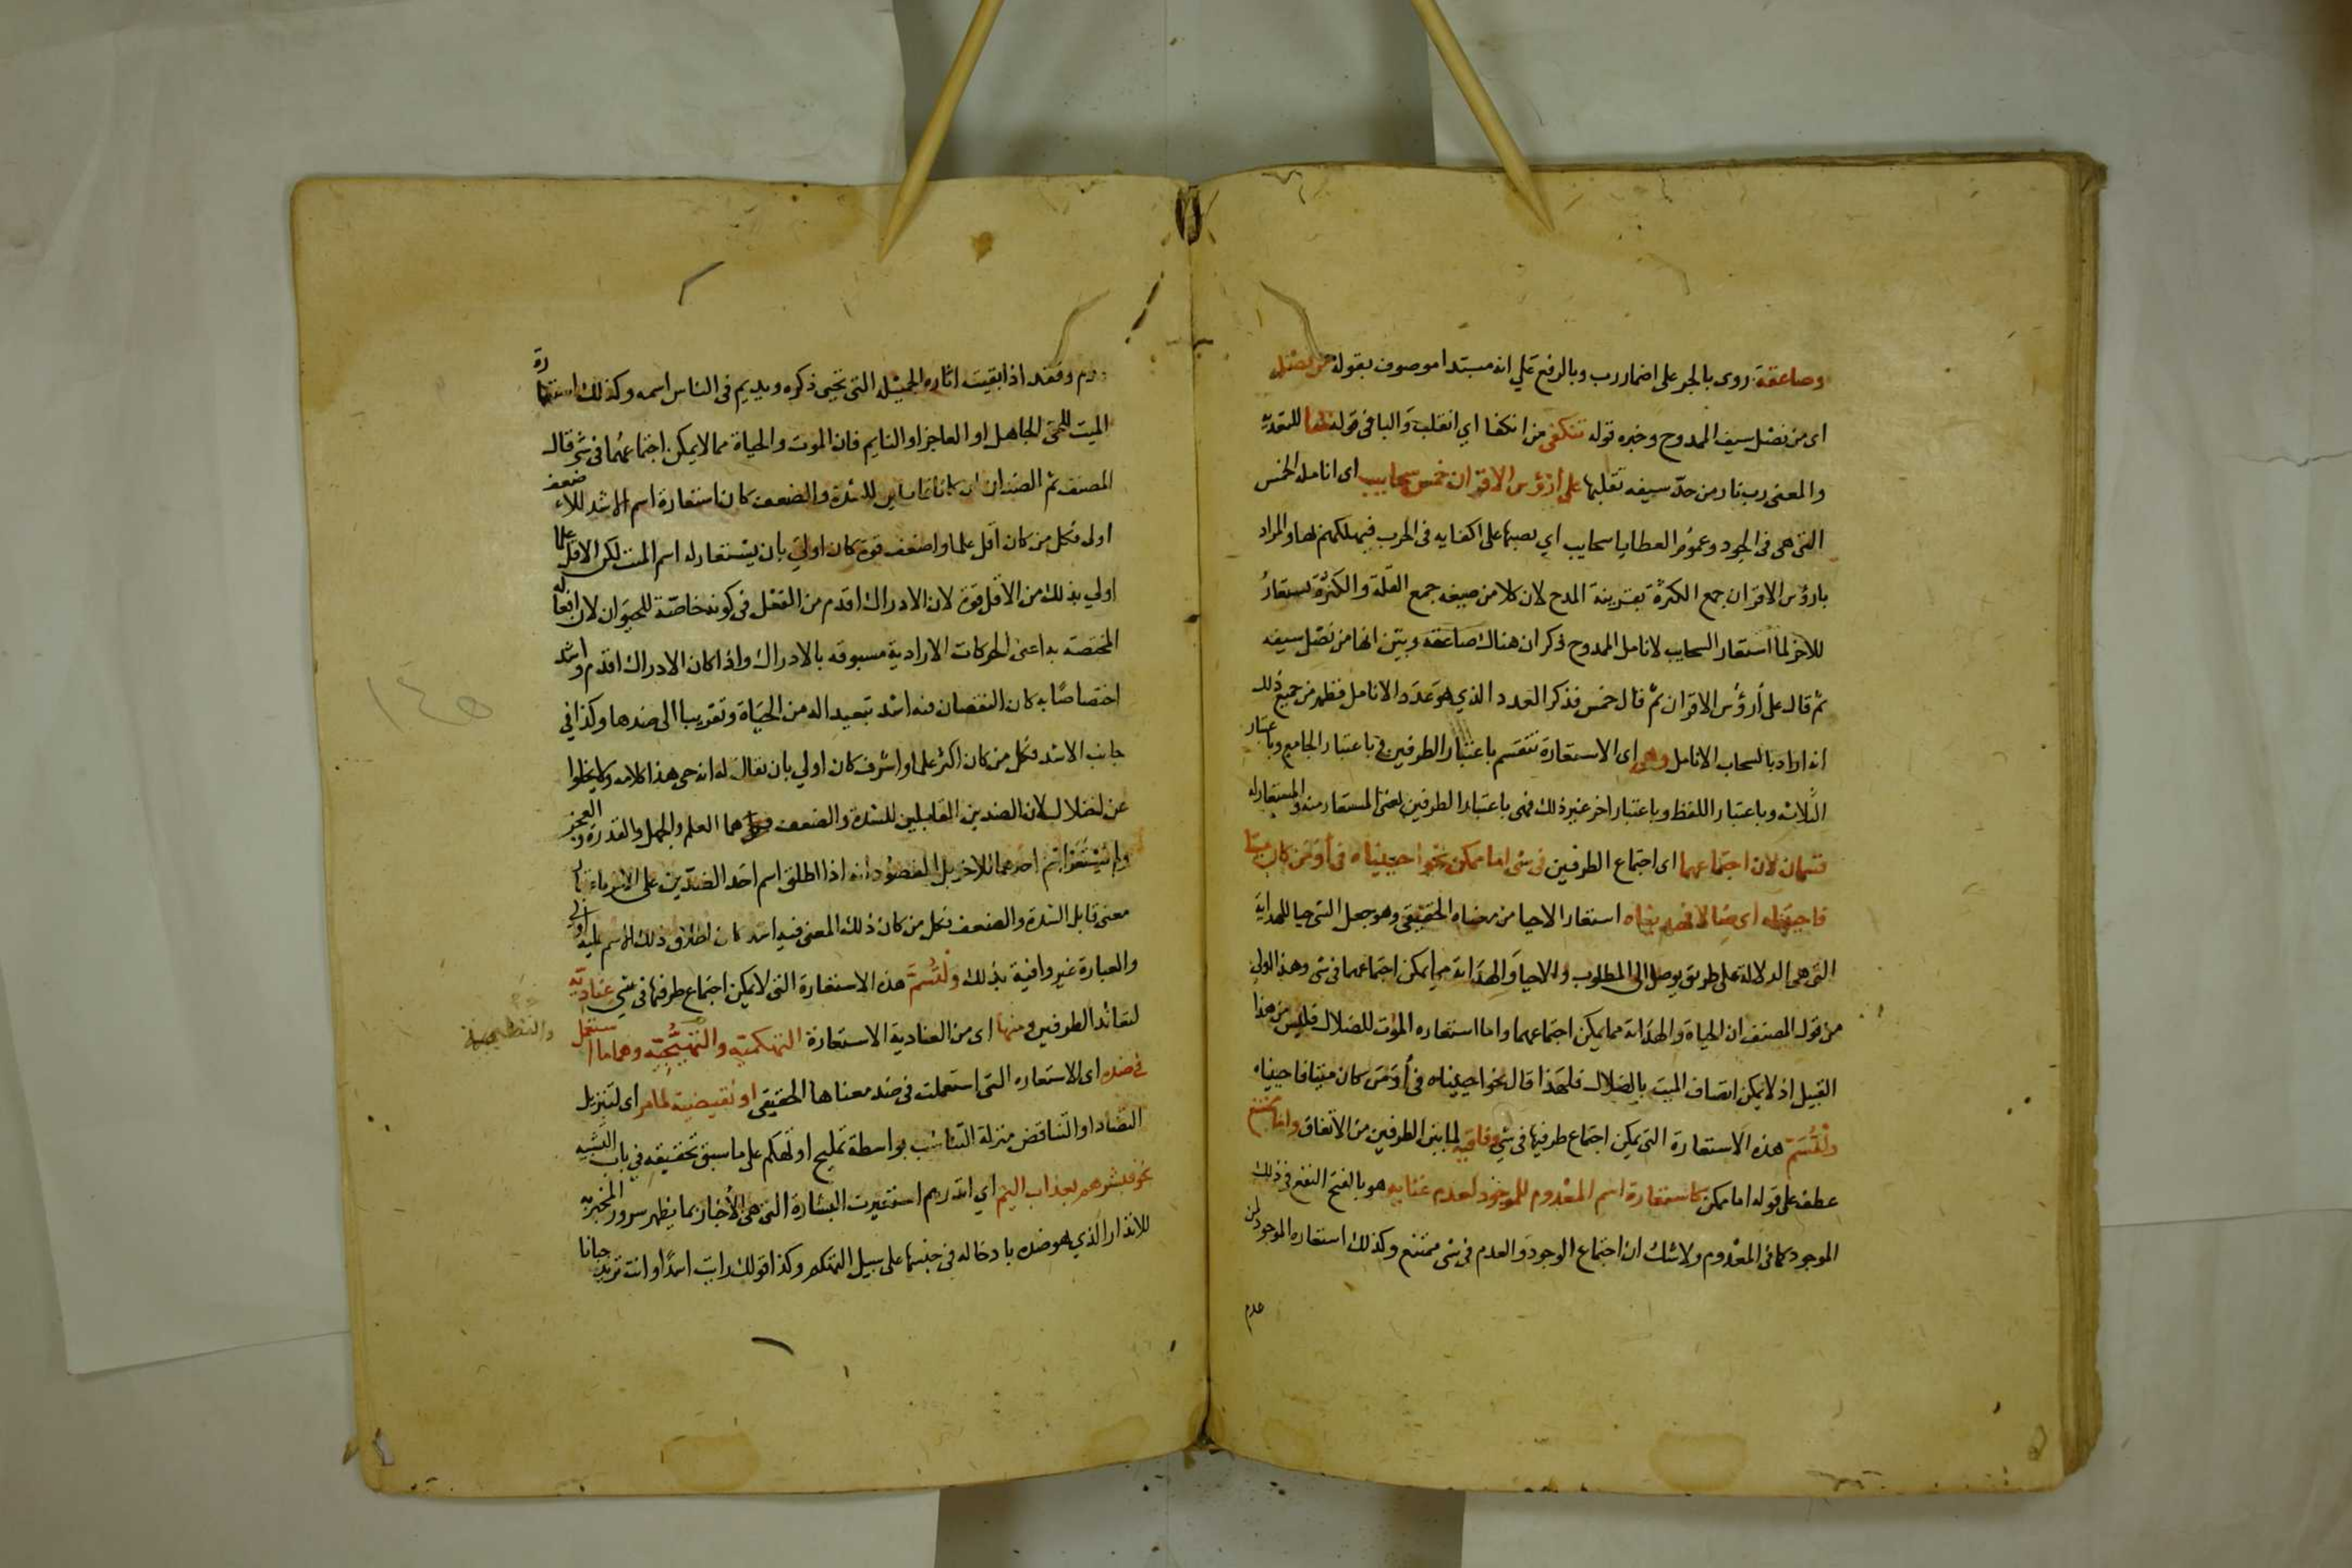 وصاعقة روى بالجر على اضمار رب وبالرفع علي انه مبتدا موصوف بقوله من نصل
اى من نصل سيف الممدوح وخبره قوله تنكفى من انكفا اي انقلب والبا فى قوله بها للتعدية
والمعنى رب نار من حد سيفه تقلبها على أرؤس الاقران خمس سحايب اى انامله الخمس
التى هى فى الجود وعموم العطايا سحايب اي يصبها على اكفايه فى الحرب فيهلكهم لها والمراد
بارؤس الاقران جمع الكثرة بقرينة المدح لان كلا من صيغه جمع القلة والكثرة تستعار
للاخر لما استعار السحايب لانامل الممدوح ذكر ان هناك صاعقه وبين انها من نصل سيفه
ثم قال على أرؤس الاقران ثم قال خمس فذكر العدد الذي هو عدد الانامل فظهر من جميع ذلك
انه اراد بالسحاب الانامل وهى اى الاستعارة تنقسم باعتبار الطرفين وباعتبار الجامع وباعتبار
الثلاث وباعتبار اللفظ وباعتبار اخر غير ذلك فهى باعتبار الطرفين يعنى المستعار منه والمستعار له
قسمان لان اجتماعهما اى اجتماع الطرفين فى شى اما ممكن نحو احييناه فى أو من كان ميتا
فاحييناه اى ضالا فهديناه استعار الاحيا من معناه الحقيقى وهو جعل الشى حيا للهداية
التى هى الدلالة على طريق يوصل الى المطلوب والاحيا والهداية مما يمكن اجتماعهما فى شى وهذا اولى
من قول المصنف ان الحياة والهداية مما يمكن اجتماعهما واما استعاره الموت للضلال فليس من هذا
القبيل اذ لا يمكن اتصاف الميت بالضلال فلهذا قال نحو احييناه فى أو من كان ميتا فاحييناه
ولتسم هذه الاستعارة التى يمكن اجتماع طرفيها فى شي وفاقيه لما بين الطرفين من الاتفاق واما ممتنع
عطف على قوله اما ممكن كاستعارة اسم المعدوم للموجود لعدم غنايه هو بالفتح النفع فى ذلك
الموجود كما فى المعدوم ولا شك ان اجتماع الوجود والعدم فى شى ممتنع وكذلك استعاره الموجود لمن
عدم
عدم وفقد اذا بقيت اثاره الجميله التى تحيى ذكره ويديم فى الناس اسمه وكذلك استعارة
الميت للحى الجاهل او العاجز او النايم فان الموت والحياة مما لا يمكن اجتماعهما فى شى قال
المصنف ثم الضدان ان كانا قابلين للشدة والضعف كان استعارة اسم الاشد للاضعف
اولى فكل من كان اقل علما واضعف قوة كان اولي بان يستعار له اسم الميت لكن الاقل علما
اولي بذلك من الاقل قوة لان الادراك اقدم من الفعل فى كونه خاصة للحيوان لان افعاله
المختصة به اعنى الحركات الارادية مسبوقه بالادراك واذا كان الادراك اقدم واشد
اختصاصا به كان النقصان فيه اشد تبعيدا له من الحياة وتقريبا الى ضدها وكذا في
جانب الاشد فكل من كان اكثر علما او اشرف كان اولي بان يقال له انه حى هذا كلامه ولا يخلوا
عن اختلال لان الضدين القابلين للشدة والضعف هما العلم والجهل والقدرة والعجز
ولم يستعر اسم احدهما للاخر بل المقصود انه اذا اطلق اسم احد الضدين على الاخر باعتبار
معنى قابل الشدة والضعف فكل من كان ذلك المعنى فيه اشد كان اطلاق ذلك الاسم عليه اولي
والعبارة غير وافية بذلك ولتسم هذه الاستعارة التى لا يمكن اجتماع طرفيها فى شي عنادية
لتعاند الطرفين ومنها اى من العنادية الاستعارة التهكمية والتمليحية وهما ما استعمل
والتمليحية
فى ضده اى الاستعاره التى استعملت فى ضد معناها الحقيقى او نقيضيه لما مر اى لتنزيل
التضاد او التناقض منزلة التناسب بواسطة تمليح او تهكم على ما سبق تحقيقه في باب التشبيه
نحو فبشرهم بعذاب اليم اي انذرهم استعيرت البشارة التى هى الاخبار بما يظهر سرور المخبر به
للانذار الذي هو ضده بادخاله فى جنسها على سبيل التهكم وكذا قولك رايت اسدا وانت تريد جبانا
١٤٥